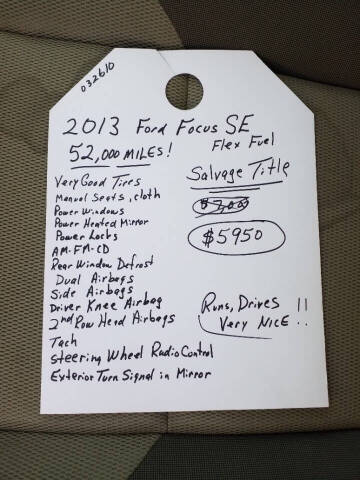 032610
2013 Ford Focus SE
Flex Fuel
52,000 MILES!
Salvage Title
$5950
Very Good Tires
Manual Seats, cloth
Power Windows
Power Heated Mirror
Power Locks
AM-FM-CD
Rear Window Defrost
Dual Airbags
Side Airbags
Driver Knee Airbag
2nd Row Head Airbags
Tach
Steering Wheel Radio Control
Exterior Turn Signal in Mirror
Runs, Drives !!
Very NICE ..